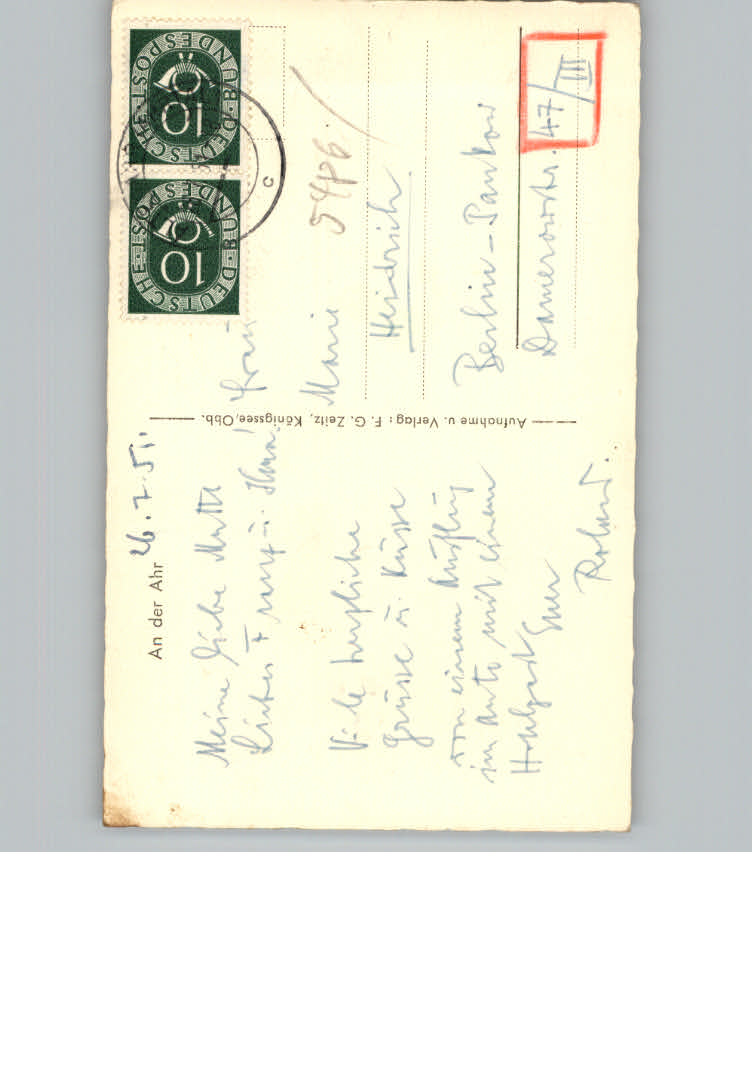 An der Ahr 26.7.51
Meine liebe Mutti
Liebes Franz u. Ilona!
Viele herzliche
Grüsse u. Küsse
von einem Ausflug
im Auto mit einem
Euer
Roland.
Aufnahme u. Verlag: F. G. Zeitz, Königssee, Obb.
DEUTSCHE BUNDESPOST
10
DEUTSCHE BUNDESPOST
10
c
54Pf.
Frau
Marie
Heidrich.
Berlin-Pankow
Damerowstr. 47/III